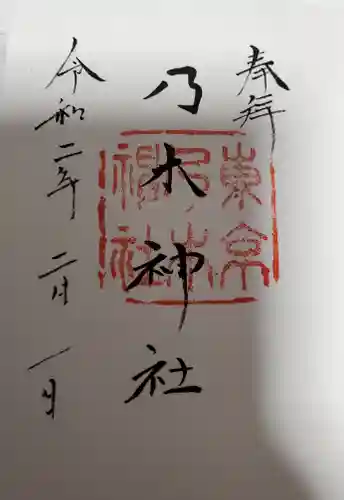 奉拝
乃木神社
東京
乃木
神社
令和二年二月一日